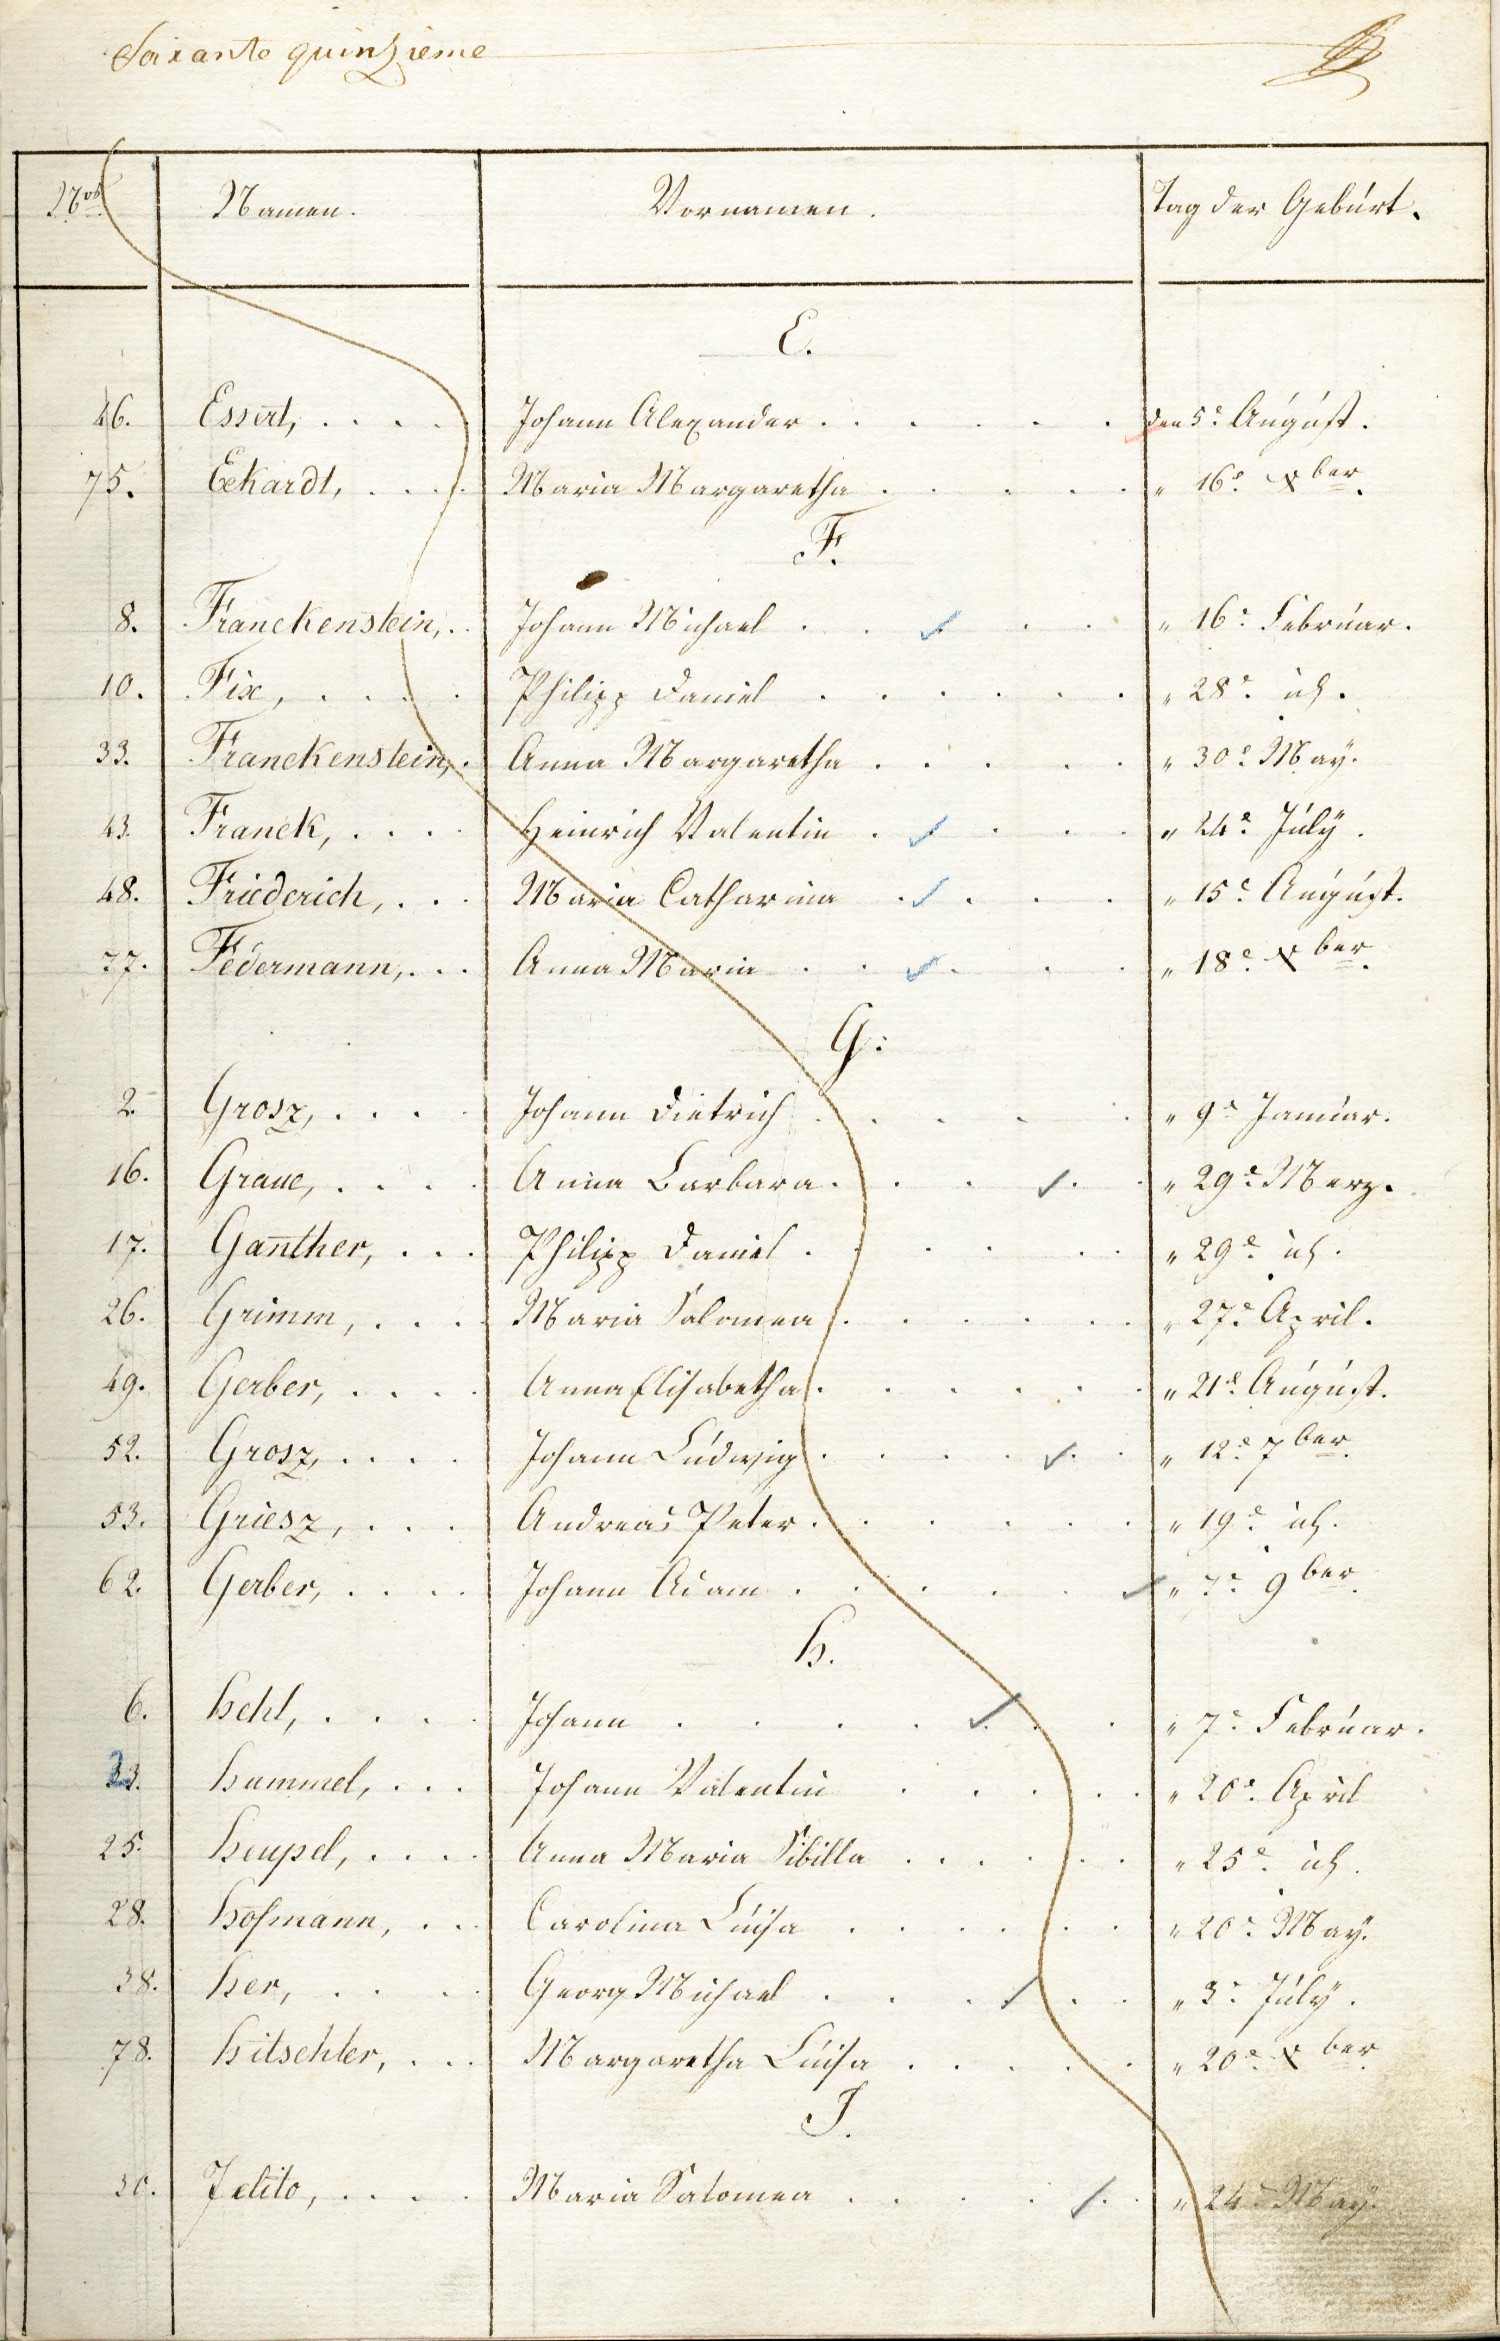 Soixante quinzieme
Nros. Namen. Vornamen. Tag der Gebúrt.
E.
46. Essert, . . . . Johann Alexander . . . . . . den 5e. Aúgúst.
75. Eckardt, . . . . Maria Margaretha . . . . . " 16e. Xber.
F.
8. Franckenstein, . . Johann Michael . . . . . " 16e. Februar.
10. Fix, . . . . Philipp Daniel . . . . . . " 28e. id.
33. Franckenstein, . Anna Margaretha . . . . . " 30e. May.
43. Franck, . . . . Heinrich Valentin . . . . . " 24e. Júly.
48. Friederich, . . . Maria Catharina . . . . . " 15e. Aúgúst.
77. Federmann, . . . Anna Maria . . . . . . " 18e. Xber.
G.
2. Grosz, . . . . Johann Dietrich . . . . . . " 9e. Januar.
16. Graue, . . . . Anna Barbara . . . . . . " 29e. Merz.
17. Gan̄ther, . . . Philipp Daniel . . . . . . " 29e. id.
26. Grimm, . . . . Maria Salomea . . . . . . " 27e. April.
49. Gerber, . . . . Anna Elisabetha . . . . . . " 21e. Aúgúst.
52. Grosz, . . . . Johann Ludwig . . . . . . " 12e. 7ber.
53. Griesz, . . . Andreas Peter . . . . . . " 19e. id.
62. Gerber, . . . . Johann Adam . . . . . . " 7e. 9ber.
H.
6. Hehl, . . . . Johann . . . . . . . " 7e. Februar.
23. Hummel, . . . Johann Valentin . . . . . " 20e. April
25. Heupel, . . . . Anna Maria Sibilla . . . . . " 25e. id.
28. Hofmann, . . . Carolina Luisa . . . . . . " 20e. May.
38. Her, . . . . Georg Michael . . . . . . " 3e. Júly.
78. Hitschler, . . . Margaretha Luisa . . . . . " 20e. Xber
J.
30. Jelito, . . . . Maria Salomea . . . . . . " 24e. May.